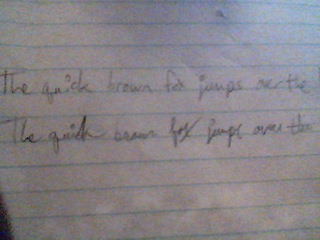 The quick brown fox jumps over the
The quick brown fox jumps over the